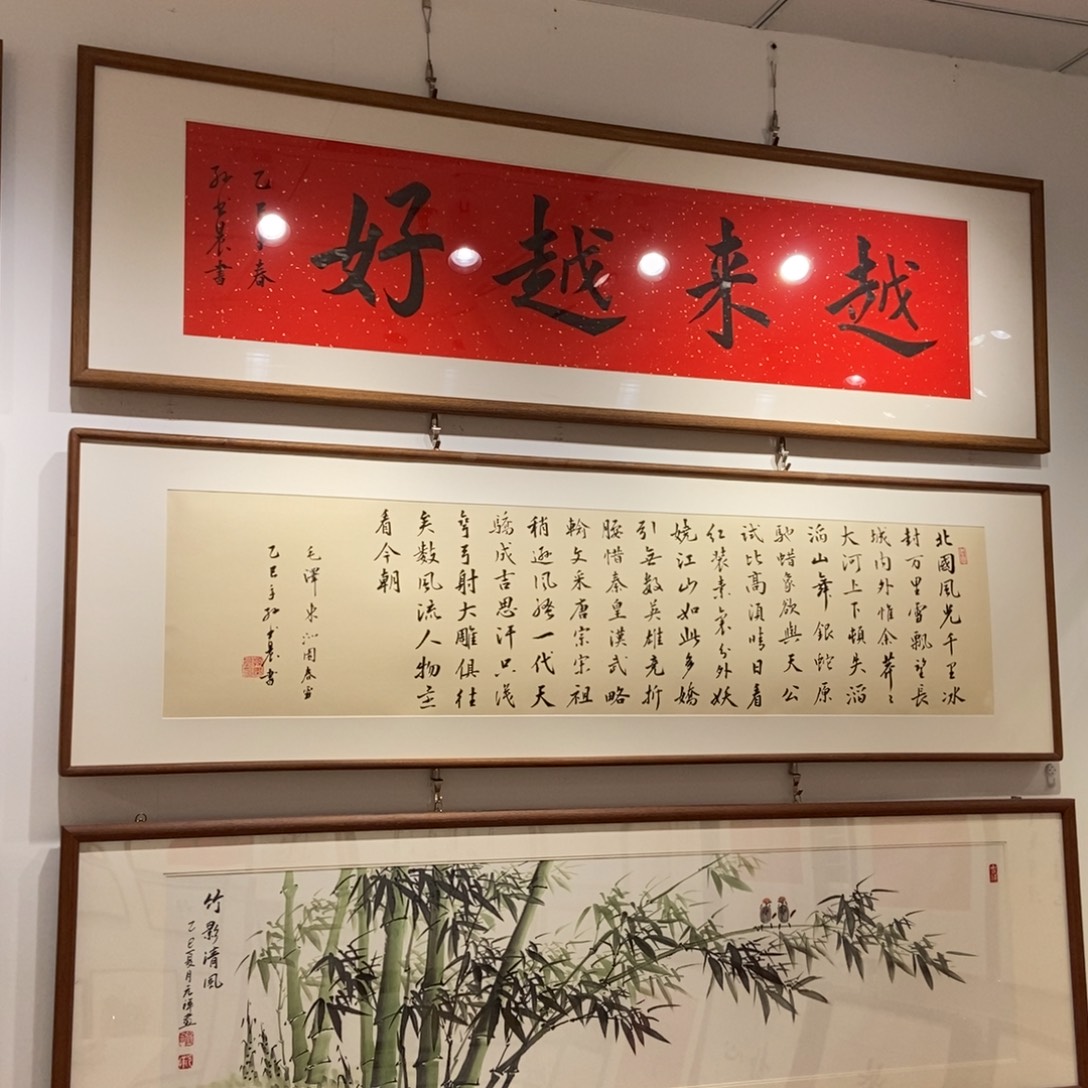 越来越好
乙巳年春
晨書
北國風光千里冰
封万里雪飘望長
城内外惟余莽〻
大河上下頓失滔
滔山舞銀蛇原
驰蜡象欲與天公
试比高須晴日看
红装素裹分外妖
娆江山如此多嬌
引無数英雄竞折
腰惜秦皇漢武略
输文采唐宗宋祖
稍逊風骚一代天
驕成吉思汗只识
弯弓射大雕俱往
矣数風流人物还
看今朝
毛澤东沁園春雪
乙巳年孙晨書
竹影清風
乙巳夏月元